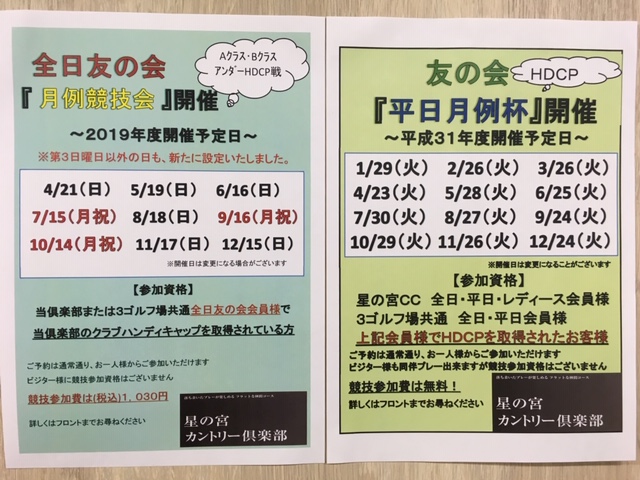 全日友の会
Aクラス・Bクラス
アンダーHDCP戦
『月例競技会』開催
～2019年度開催予定日～
※第3日曜日以外の日も、新たに設定いたしました。
4/21(日) 5/19(日) 6/16(日)
7/15(月祝) 8/18(日) 9/16(月祝)
10/14(月祝) 11/17(日) 12/15(日)
※開催日は変更になる場合がございます
【参加資格】
当倶楽部または3ゴルフ場共通全日友の会会員様で
当倶楽部のクラブハンディキャップを取得されている方
ご予約は通常通り、お一人様からご参加いただけます
ビジター様に競技参加資格はございません
競技参加費は(税込)1,030円
詳しくはフロントまでお尋ねください
落ち着いたプレーが楽しめる フラットな林間コース
星の宮
カントリー倶楽部
友の会
HDCP
『平日月例杯』開催
～平成31年度開催予定日～
1/29(火) 2/26(火) 3/26(火)
4/23(火) 5/28(火) 6/25(火)
7/30(火) 8/27(火) 9/24(火)
10/29(火) 11/26(火) 12/24(火)
※開催日は変更になることがございます
【参加資格】
星の宮CC 全日・平日・レディース会員様
3ゴルフ場共通 全日・平日会員様
上記会員様でHDCPを取得されたお客様
ご予約は通常通り、お一人様からご参加いただけます
ビジター様も同伴プレー出来ますが競技参加資格はございません
競技参加費は無料！
詳しくはフロントまでお尋ねください
落ち着いたプレーが楽しめる フラットな林間コース
星の宮
カントリー倶楽部